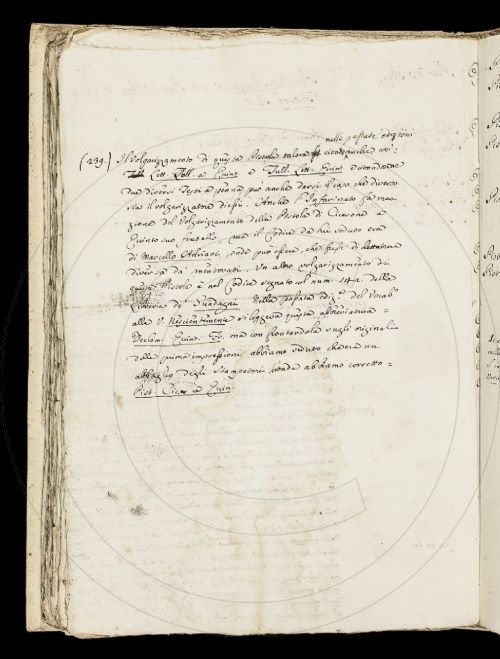 nelle passate edizioni
(239.) Il Volgarizzamento di questa Pistola talora si cita anche così:
Tull. Lett. Quint. e Tull. Lett. Quint. e citandone
due diversi Testi a penna può anche darsi il caso che diverso
sia il volgarizzatore di essi. Anche l'Infarinato fa men-
zione del Volgarizzamento della Pistola di Cicerone a
Quinto suo fratello, ma il Codice da lui veduto era
di Marcello Adriani, onde può essere, che fusse di dettatura
diverso da' mentovati. Un altro volgarizzamento di
questa Pistola è nel Codice segnato col num. 142. della
Libreria de' Guadagni. Nella passata ediz.e del Vocab.o
alla V. Nescientemente si leggeva questa abbreviatura =
Declam. Quint. Cic. ma confrontandola sugli originali
della prima impressione abbiamo veduto ch'era un
abbaglio degli Stampatori, onde abbiamo corretto =
Pist. Cicer. a Quint.